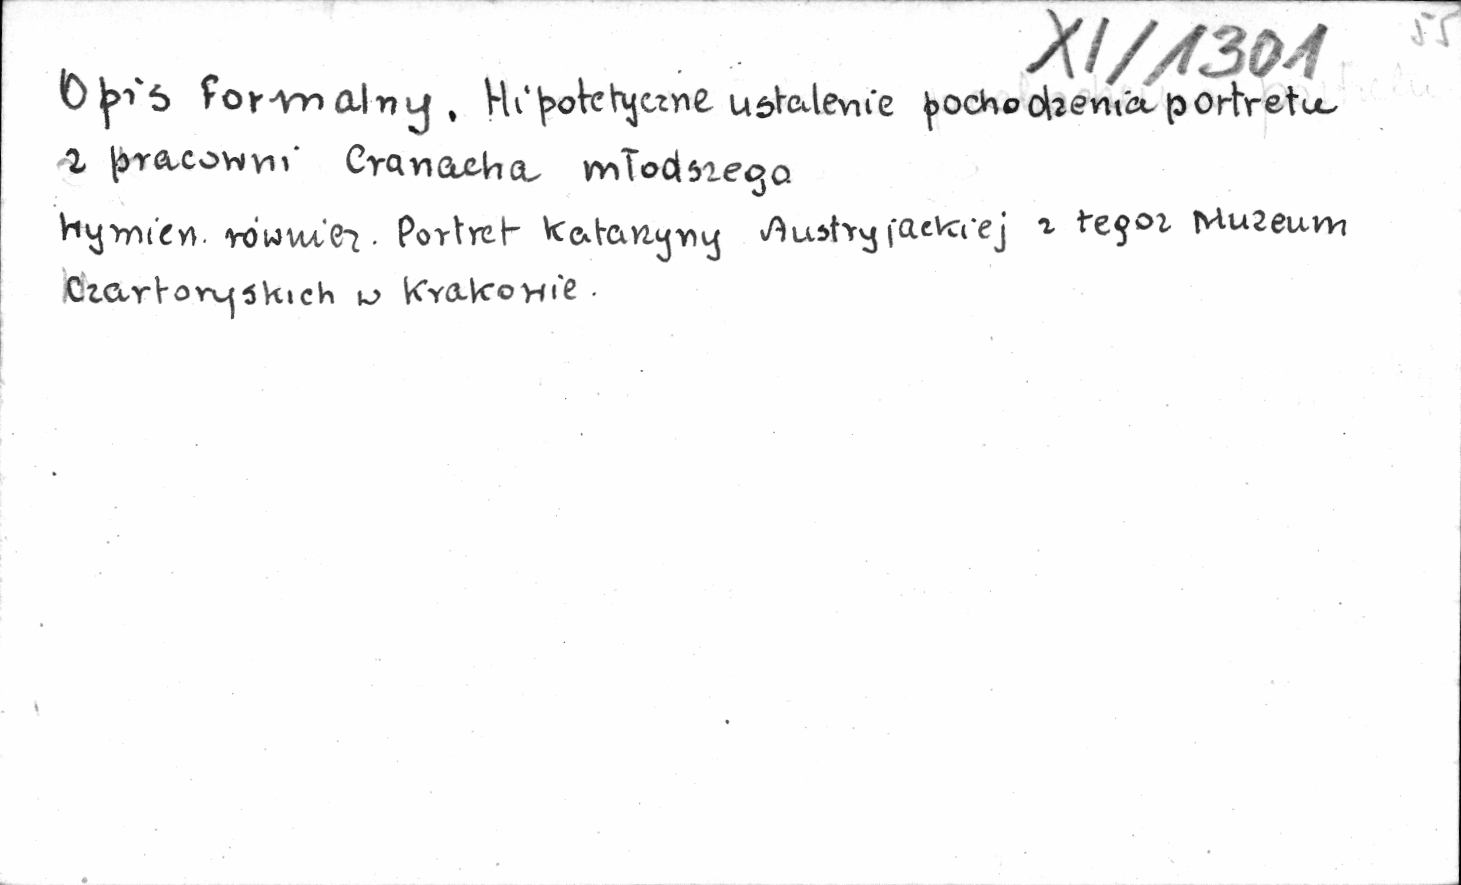 XI/1301
Opis formalny. Hipotetyczne ustalenie pochodzenia portretu
z pracowni Cranacha młodszego
Wymien. również. Portret Katarzyny Austryjackiej z tegoż Muzeum
Czartoryskich w Krakowie.